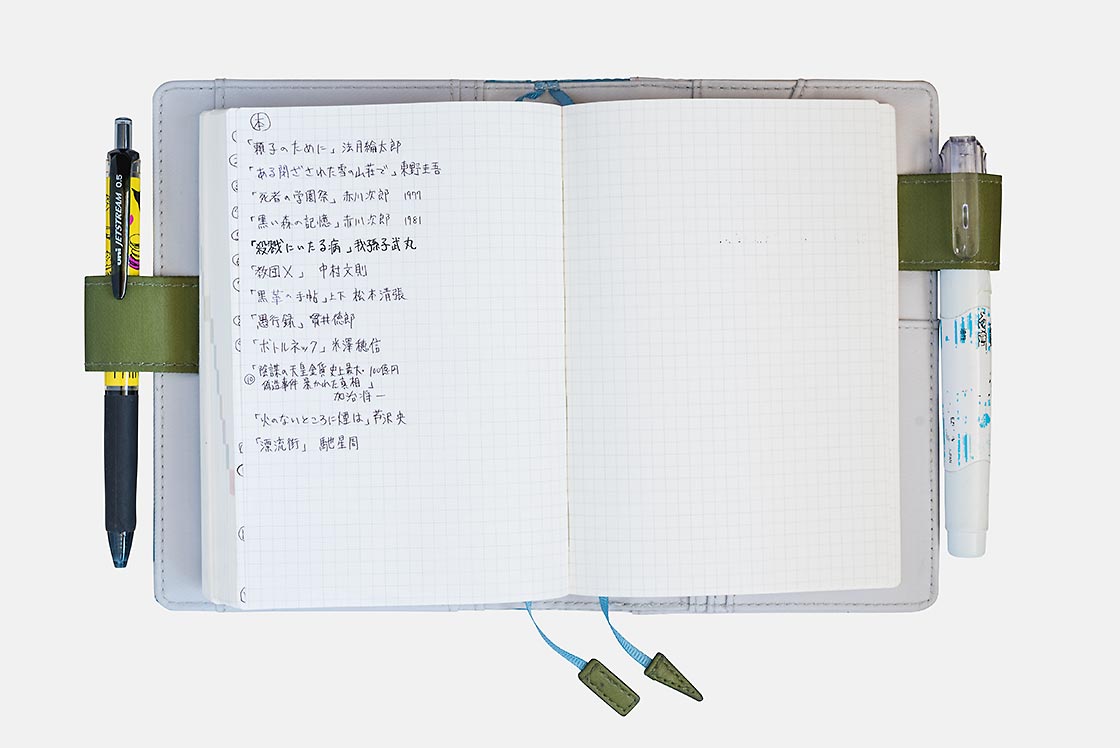 本
「頼子のために」 法月綸太郎
「ある閉ざされた雪の山荘で」東野圭吾
「死者の学園祭」赤川次郎 1977
「黒い森の記憶」赤川次郎 1981
「殺戮にいたる病」我孫子武丸
「教団X」 中村文則
「黒革の手帖」上下 松本清張
「愚行録」 貫井徳郎
「ボトルネック」 米澤穂信
⑩「陰謀の天皇金貨 史上最大・100億円
偽造事件 暴かれた真相 」
加治将一
「火のないところに煙は」芦沢央
「漂流街」 馳星周
uni JETSTREAM 0.5